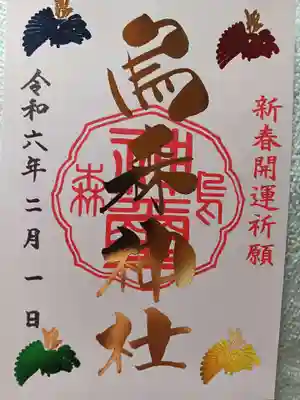 新春開運祈願
烏森神社
烏森
令和六年二月一日